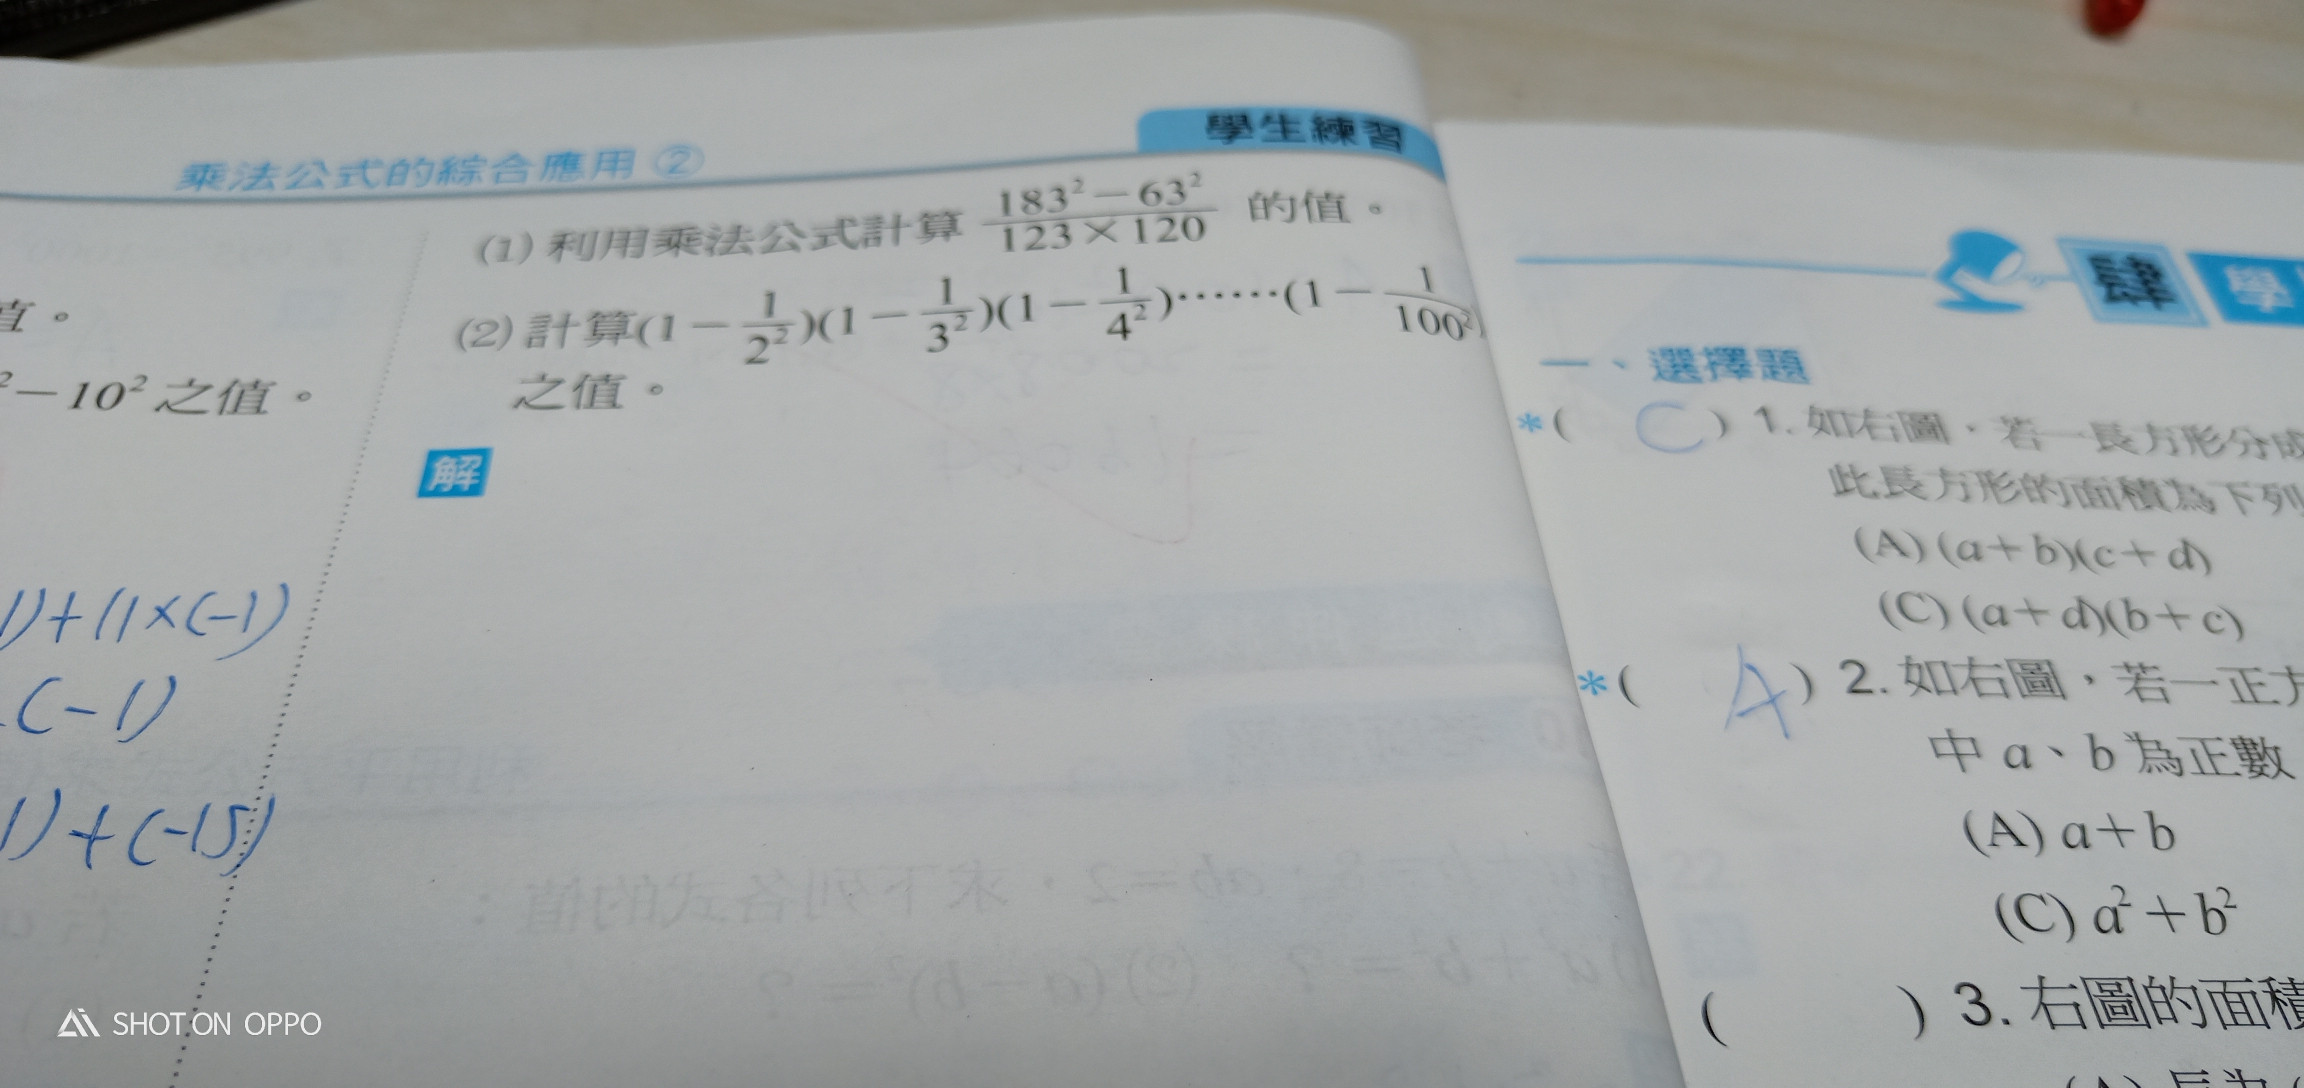 乘法公式的綜合應用 ②
學生練習
(1) 利用乘法公式計算 \frac{183²－63²}{123×120} 的值。
(2) 計算(1－\frac{1}{2²})(1－\frac{1}{3²})(1－\frac{1}{4²})……(1－\frac{1}{100²})
之值。
解
值。
²－10² 之值。
1)+(1×(-1)
(-1)
1)+(-15)
肆 學
一、選擇題
*( C ) 1. 如右圖，若一長方形分成
此長方形的面積為下列
(A) (a＋b)(c＋d)
(C) (a＋d)(b＋c)
*( A ) 2. 如右圖，若一正方
中 a、b 為正數
(A) a＋b
(C) a²＋b²
( ) 3. 右圖的面積
SHOT ON OPPO